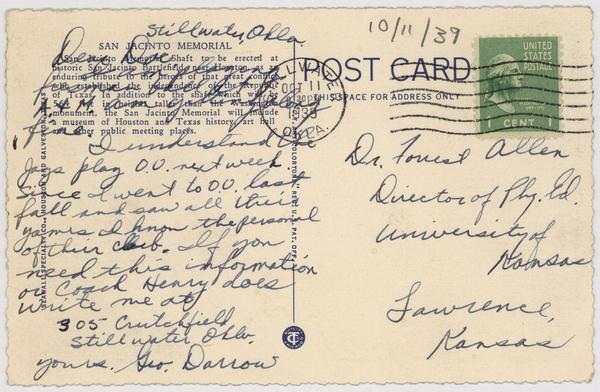 Stillwater, Okla
10/11/39
Dear Doc
SAN JACINTO MEMORIAL
San Jacinto Memorial Shaft to be erected at
historic San Jacinto Battlefield near Houston, as an
enduring tribute to the heroes of that great conflict
which established the independence of the Republic
of Texas. In addition to the shaft, which will be
taller than the Washington
monument, the San Jacinto Memorial will include
a museum of Houston and Texas history, art hall
and other public meeting places.
time
I understand
Jays play O.U. next week
Since I went to O.U. last
fall and saw all their
games I know the personel
of their club. If you
need this information
or Coach Henry does
write me at
305 Crutchfield
Stillwater, Okla.
yours. Geo. Darrow
POST CARD
THIS SPACE FOR ADDRESS ONLY
STILLWATER
OCT 11
1939
OKLA.
UNITED
STATES
POSTAGE
WASHINGTON
1 CENT 1
Dr. Forrest Allen
Director of Phy. Ed.
University of
Kansas
Lawrence,
Kansas
SEAWALL SPECIALTY CO., HOUSTON AND GALVESTON
REG. U.S. PAT. OFF.